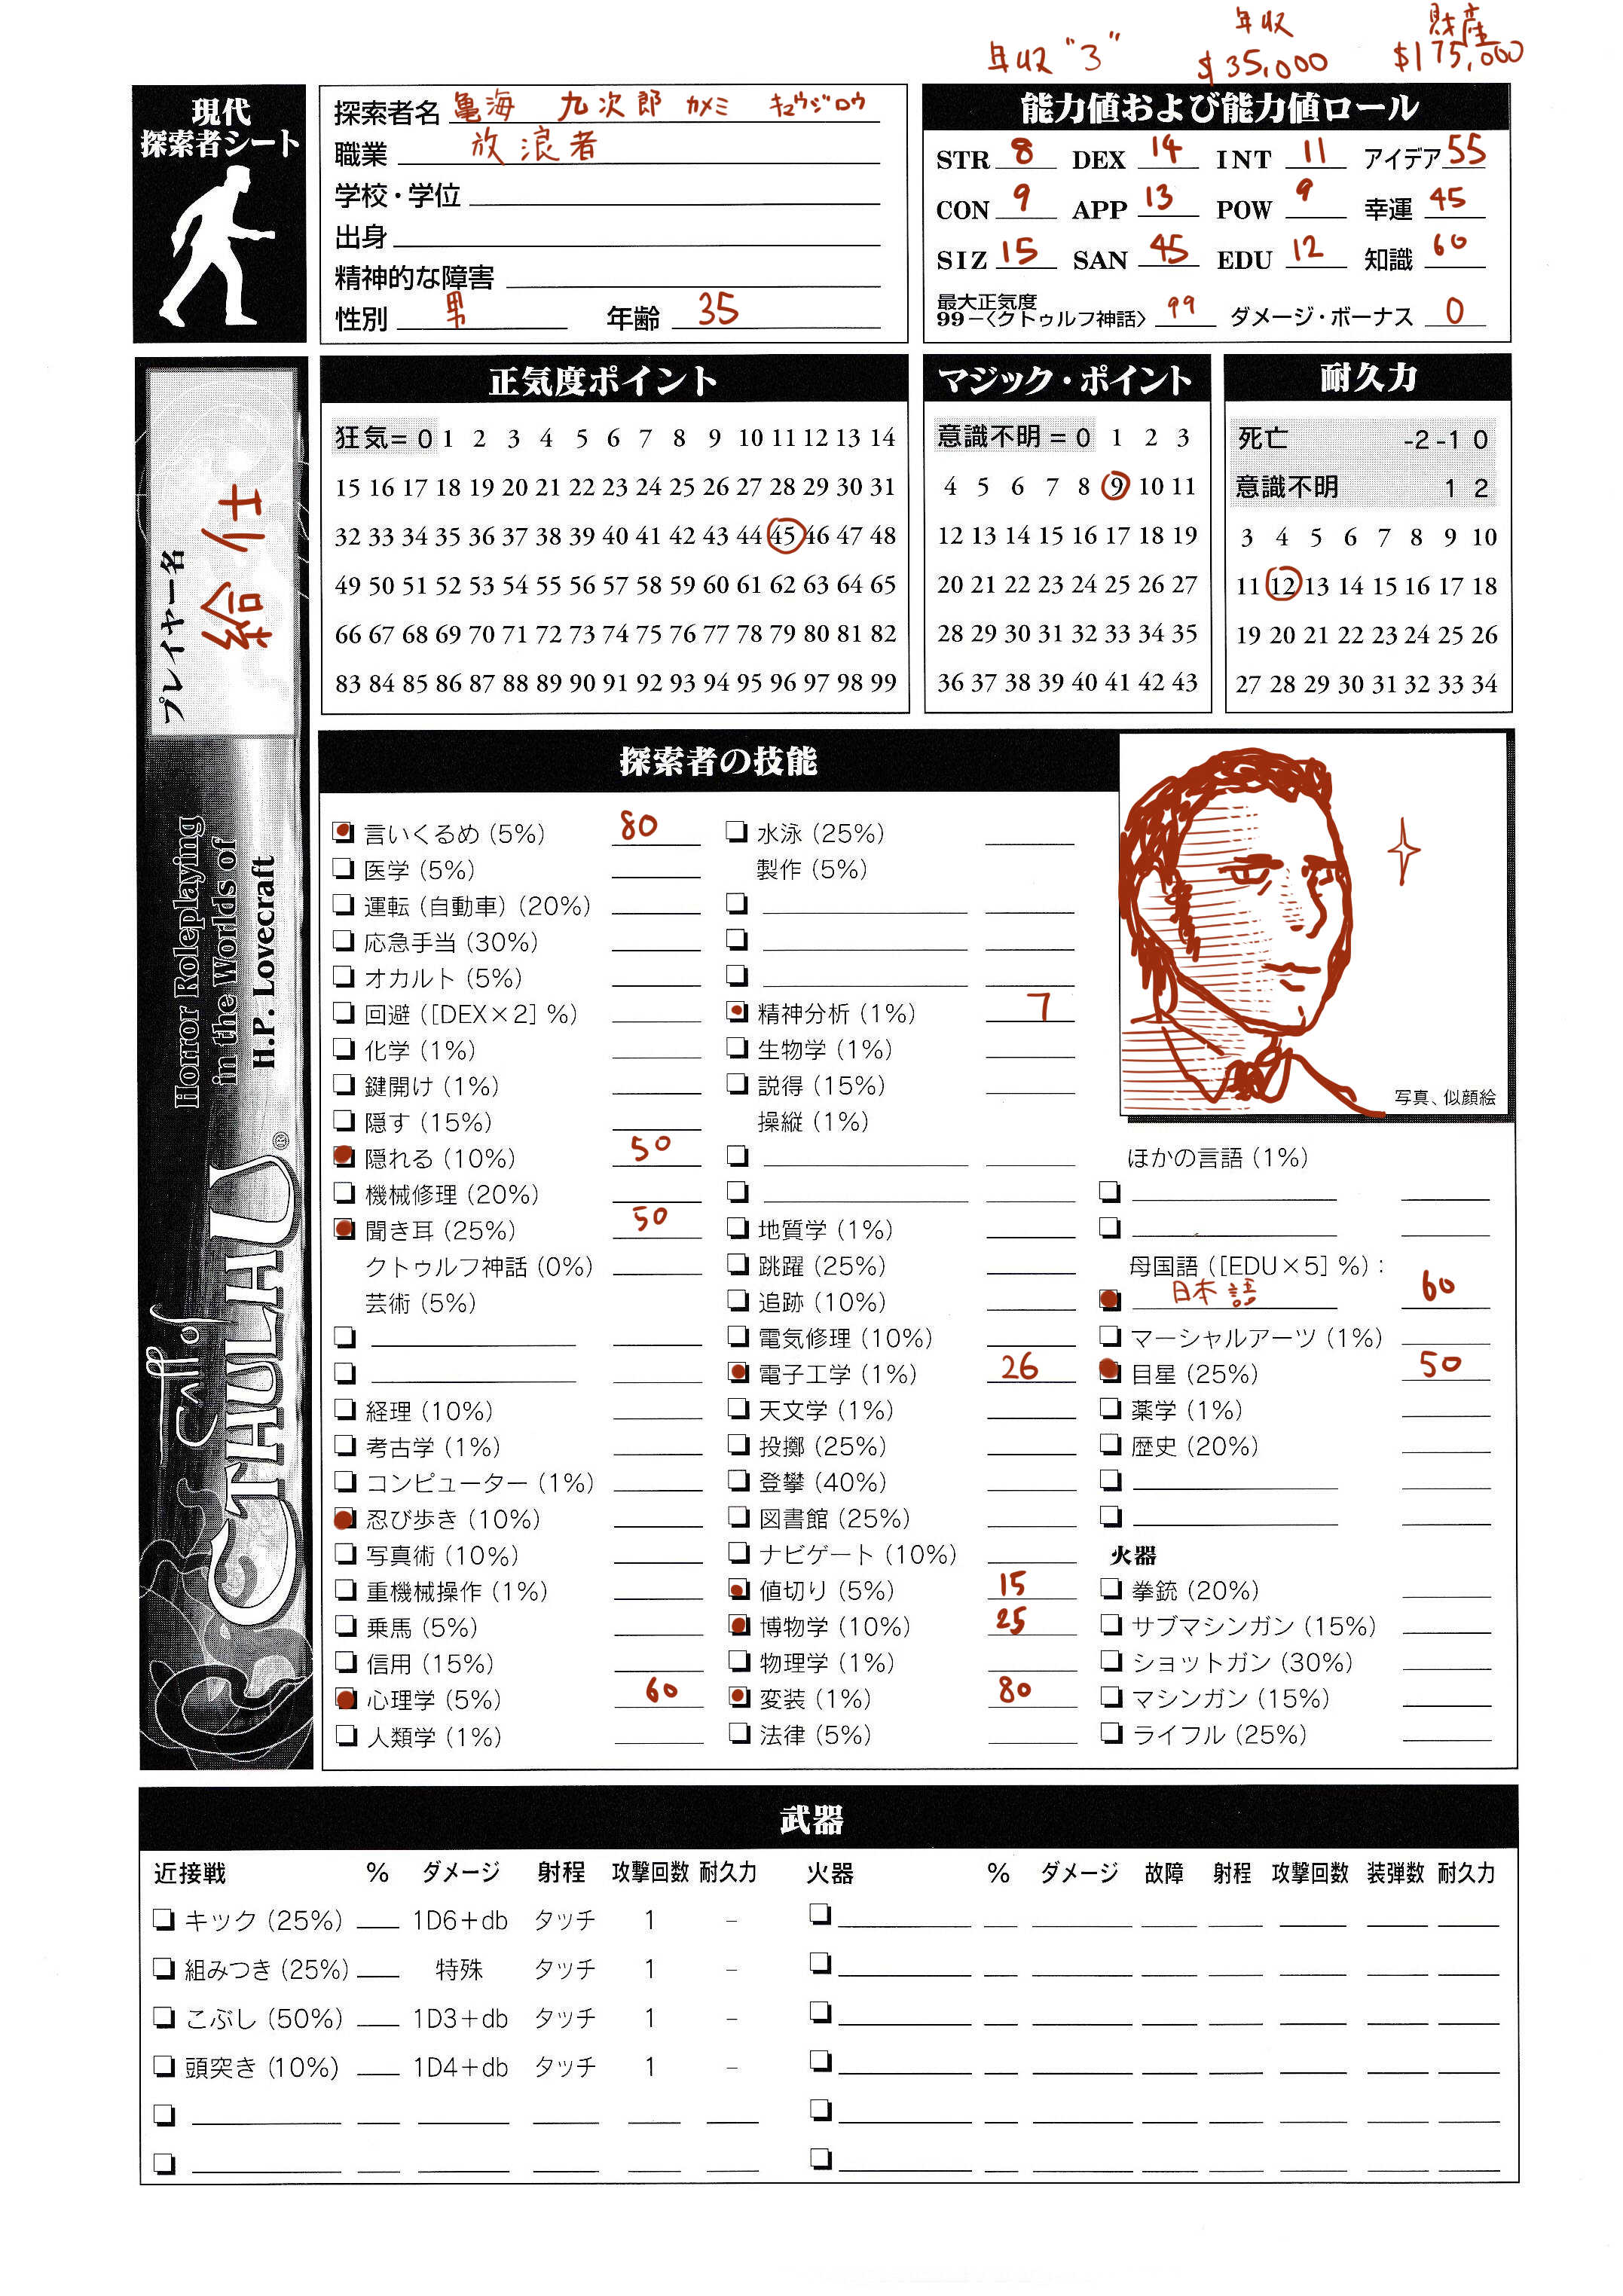 年収"3"
年収
$35,000
財産
$175,000
現代
探索者シート
探索者名 亀海 九次郎 カメミ キュウジロウ
職業 放浪者
学校・学位
出身
精神的な障害
性別 男 年齢 35
能力値および能力値ロール
STR 8 DEX 14 INT 11 アイデア 55
CON 9 APP 13 POW 9 幸運 45
SIZ 15 SAN 45 EDU 12 知識 60
最大正気度
99−〈クトゥルフ神話〉 99 ダメージ・ボーナス 0
プレイヤー名
Horror Roleplaying
in the Worlds of
H.P. Lovecraft
Call of
CTHULHU®
正気度ポイント
狂気= 0 1 2 3 4 5 6 7 8 9 10 11 12 13 14
15 16 17 18 19 20 21 22 23 24 25 26 27 28 29 30 31
32 33 34 35 36 37 38 39 40 41 42 43 44 45 46 47 48
49 50 51 52 53 54 55 56 57 58 59 60 61 62 63 64 65
66 67 68 69 70 71 72 73 74 75 76 77 78 79 80 81 82
83 84 85 86 87 88 89 90 91 92 93 94 95 96 97 98 99
マジック・ポイント
意識不明 = 0 1 2 3
4 5 6 7 8 9 10 11
12 13 14 15 16 17 18 19
20 21 22 23 24 25 26 27
28 29 30 31 32 33 34 35
36 37 38 39 40 41 42 43
耐久力
死亡 -2 -1 0
意識不明 1 2
3 4 5 6 7 8 9 10
11 12 13 14 15 16 17 18
19 20 21 22 23 24 25 26
27 28 29 30 31 32 33 34
探索者の技能
言いくるめ (5%) 80
医学 (5%)
運転 (自動車) (20%)
応急手当 (30%)
オカルト (5%)
回避 ([DEX×2] %)
化学 (1%)
鍵開け (1%)
隠す (15%)
隠れる (10%) 50
機械修理 (20%)
聞き耳 (25%) 50
クトゥルフ神話 (0%)
芸術 (5%)
経理 (10%)
考古学 (1%)
コンピューター (1%)
忍び歩き (10%)
写真術 (10%)
重機械操作 (1%)
乗馬 (5%)
信用 (15%)
心理学 (5%) 60
人類学 (1%)
水泳 (25%)
製作 (5%)
精神分析 (1%) 7
生物学 (1%)
説得 (15%)
操縦 (1%)
地質学 (1%)
跳躍 (25%)
追跡 (10%)
電気修理 (10%)
電子工学 (1%) 26
天文学 (1%)
投擲 (25%)
登攀 (40%)
図書館 (25%)
ナビゲート (10%)
値切り (5%) 15
博物学 (10%) 25
物理学 (1%)
変装 (1%) 80
法律 (5%)
写真、似顔絵
ほかの言語 (1%)
母国語 ([EDU×5] %) :
日本語 60
マーシャルアーツ (1%)
目星 (25%) 50
薬学 (1%)
歴史 (20%)
火器
拳銃 (20%)
サブマシンガン (15%)
ショットガン (30%)
マシンガン (15%)
ライフル (25%)
武器
近接戦 % ダメージ 射程 攻撃回数 耐久力
キック (25%) 1D6+db タッチ 1 −
組みつき (25%) 特殊 タッチ 1 −
こぶし (50%) 1D3+db タッチ 1 −
頭突き (10%) 1D4+db タッチ 1 −
火器 % ダメージ 故障 射程 攻撃回数 装弾数 耐久力